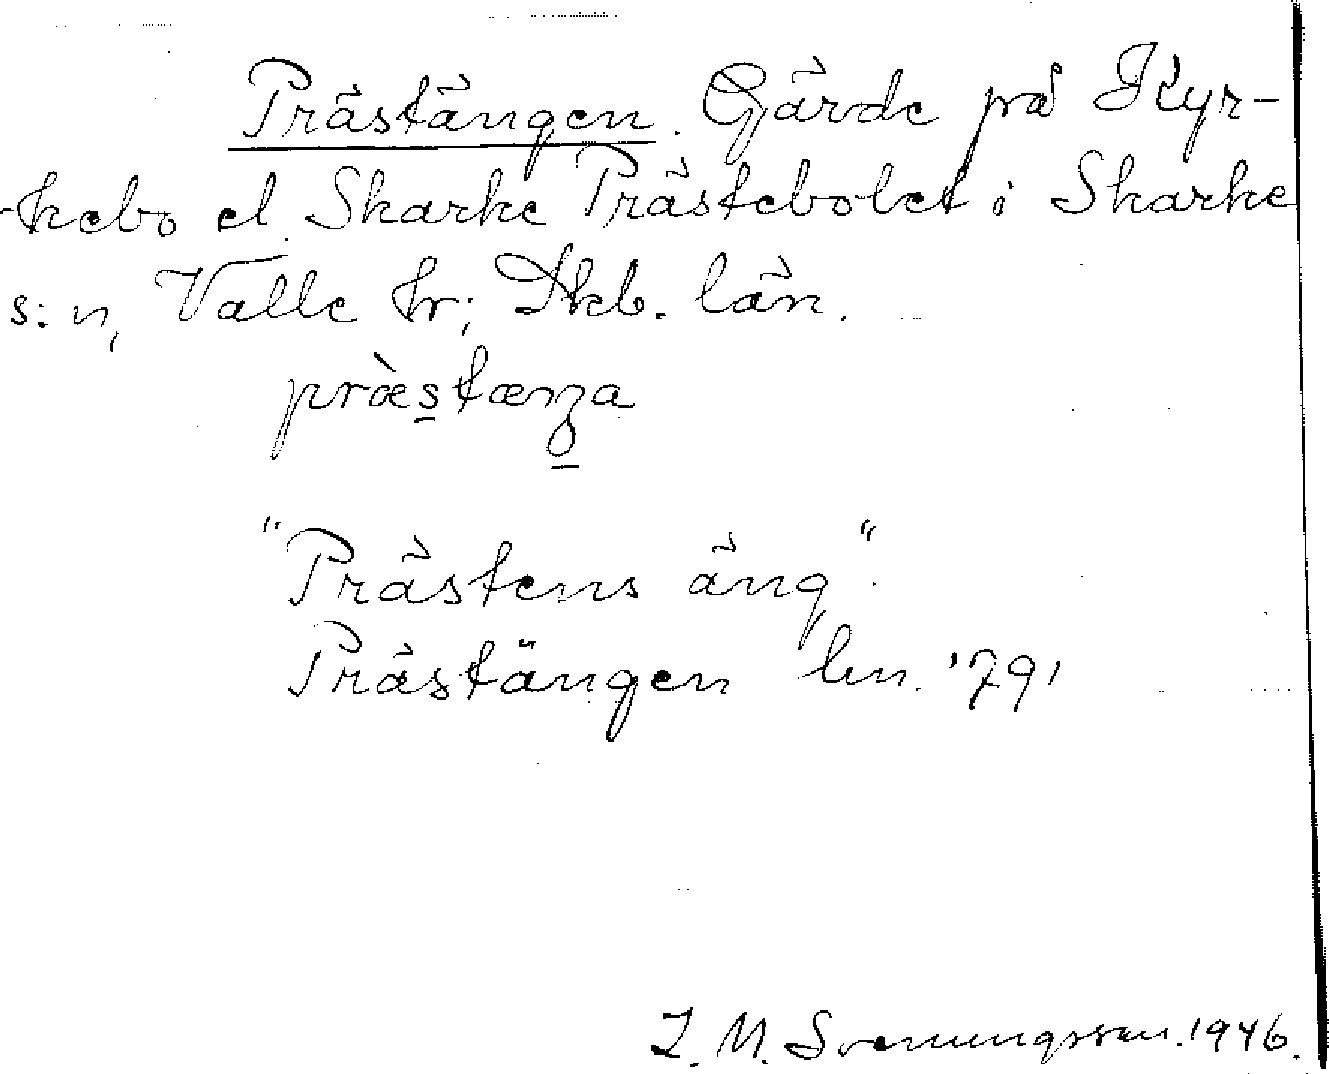 Prästängen. Gärde på Kyr-
kebo el. Skarke Prästebolet i Skarke
s:n, Valle hr; Skb. län.
præ̀stænga
"Prästens äng".
Prästängen lm. '79'
I. M. Svenungsson. 1946.